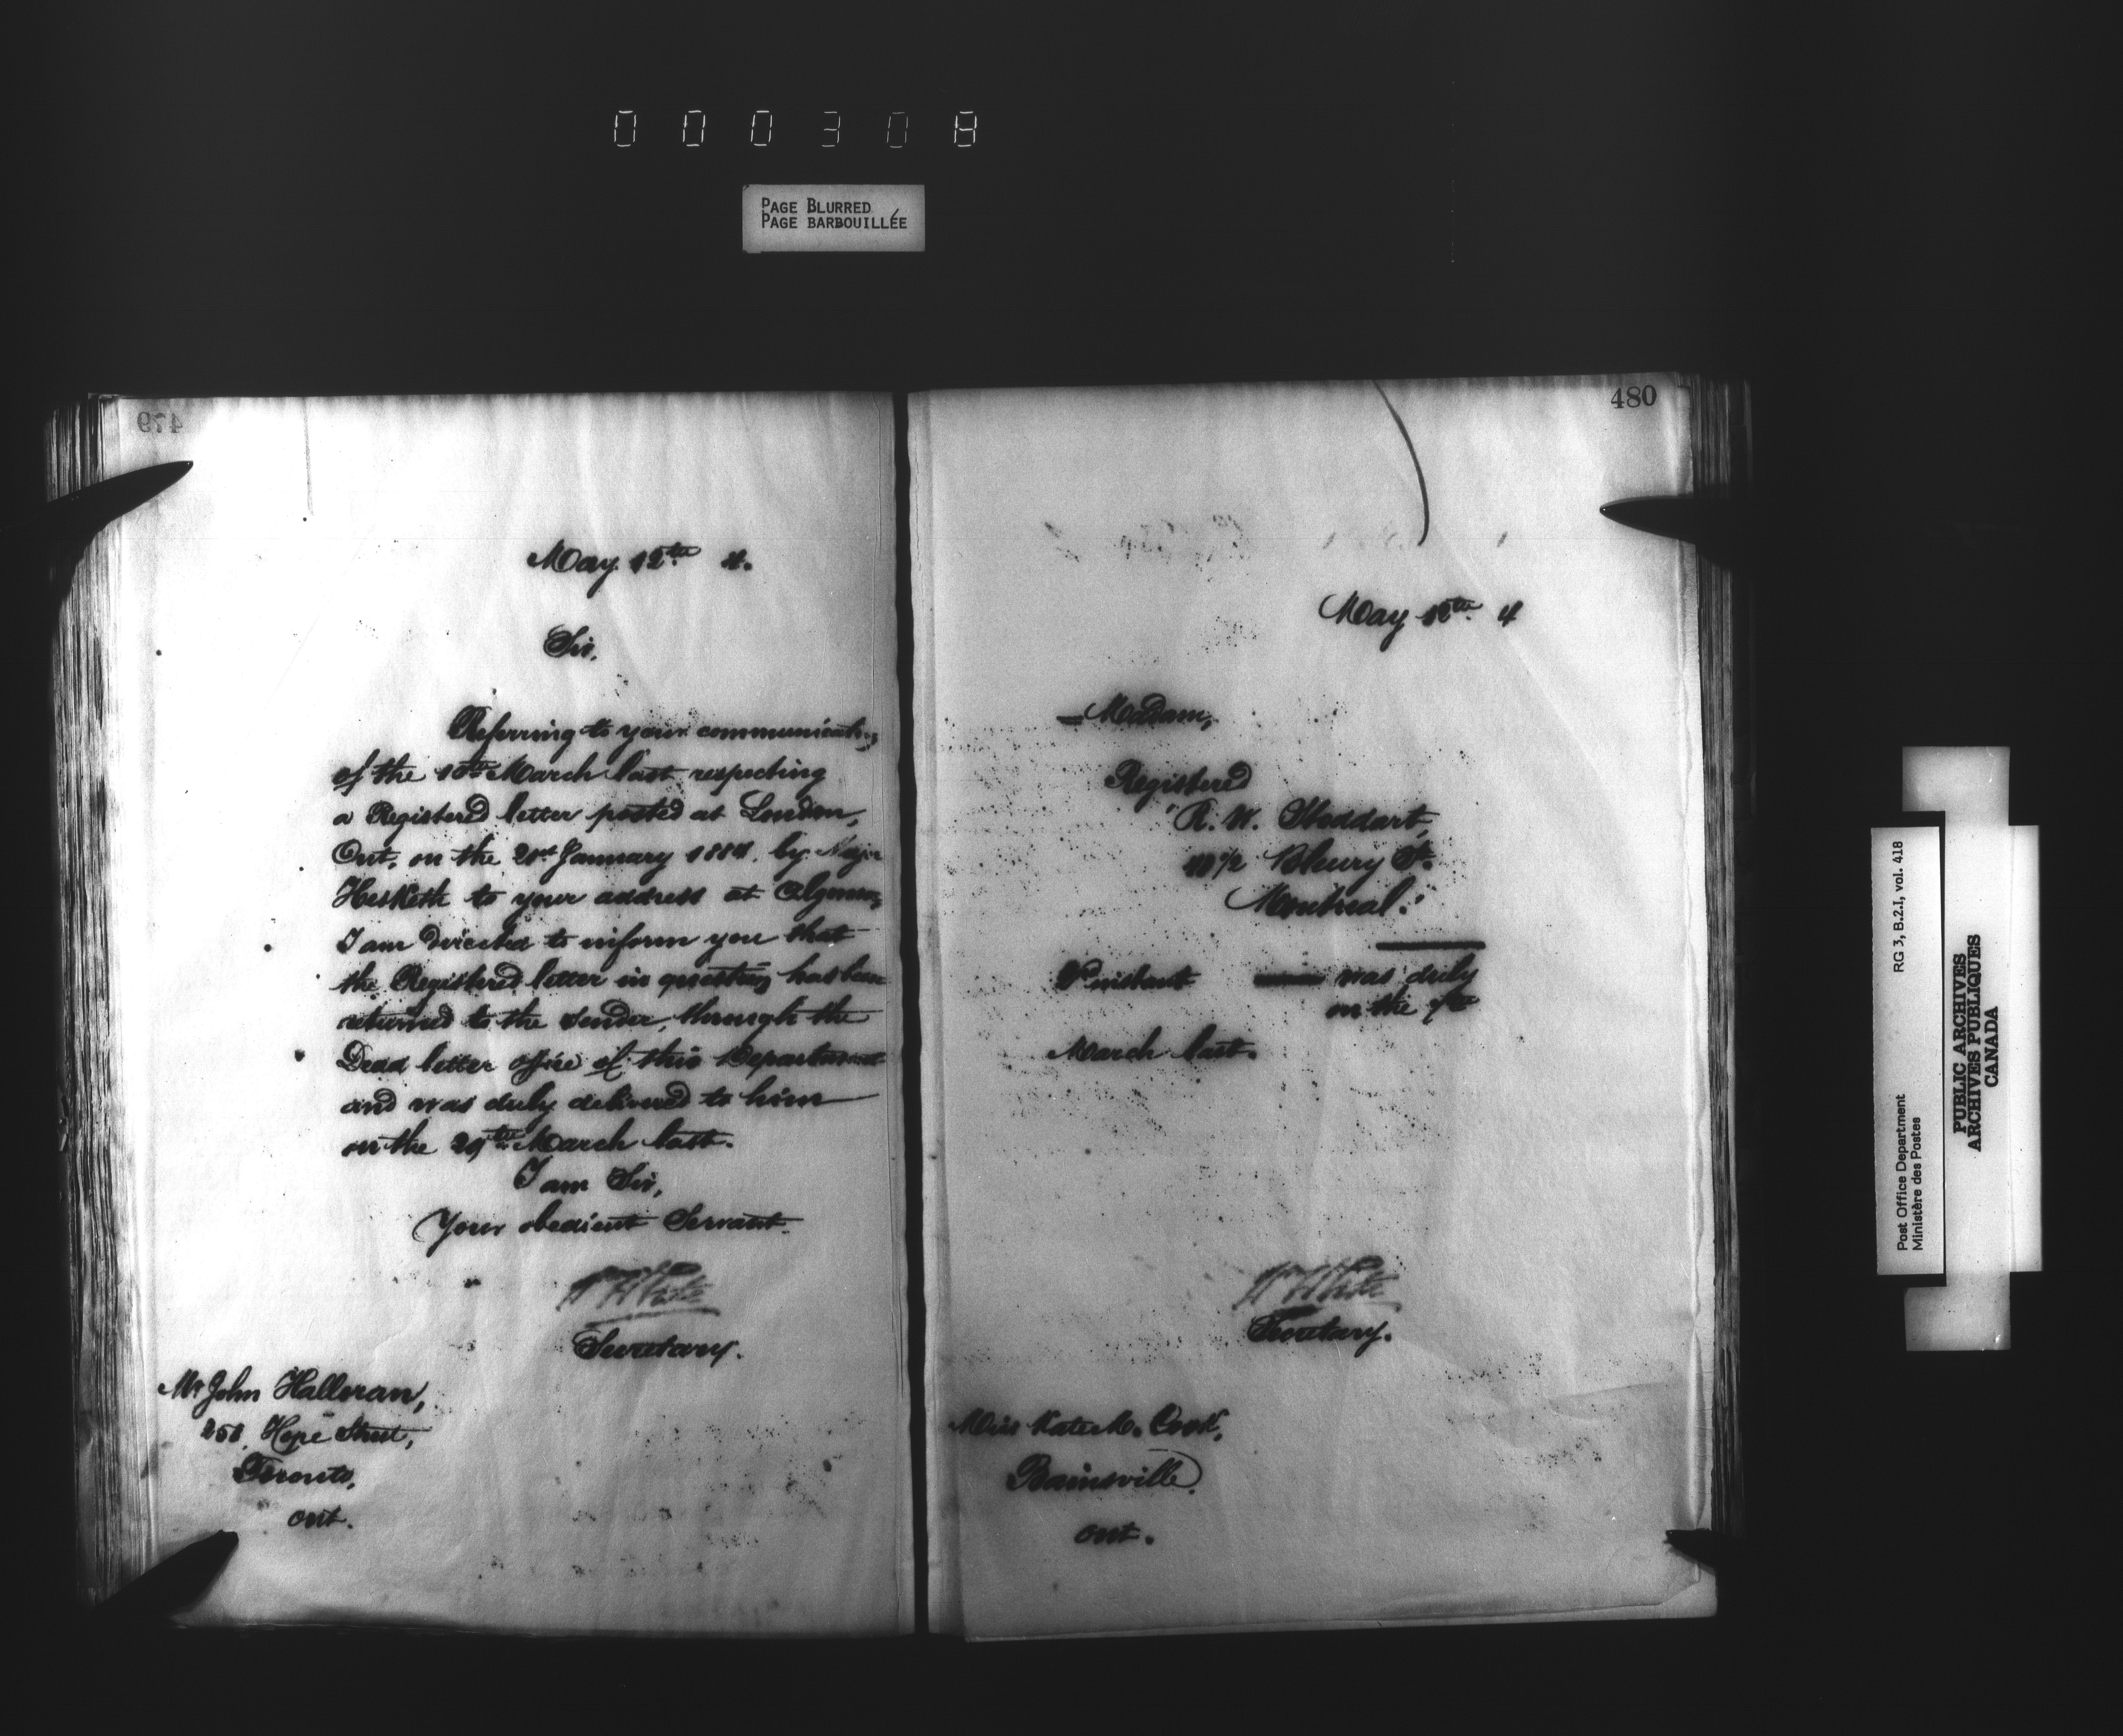 000308
PAGE BLURRED
PAGE BARBOUILLÉE
479
May 12th 4.
Sir,
Referring to your communication
of the 10th March last respecting
a Registered letter posted at London,
Ont, on the January 1884, by Major
Hesketh to your address at Algoma,
I am directed to inform you that
the Registered letter in question has been
returned to the sender, through the
Dead letter office of this Department
and was duly delivered to him
on the 29th March last.
I am Sir,
Your obedient Servant.
Secretary.
Mr John Halloran,
Hope Street,
Toronto,
Ont.
480
May 12th 4
Madam,
Registered
"R. W. Stoddart,
Bleury St.
Montreal."
instant was duly
on the
March last.
Secretary.
Miss Kate M. Cook,
Bainsville,
Ont.
Post Office Department
Ministère des Postes
RG 3, B.2.I, vol. 418
PUBLIC ARCHIVES
ARCHIVES PUBLIQUES
CANADA